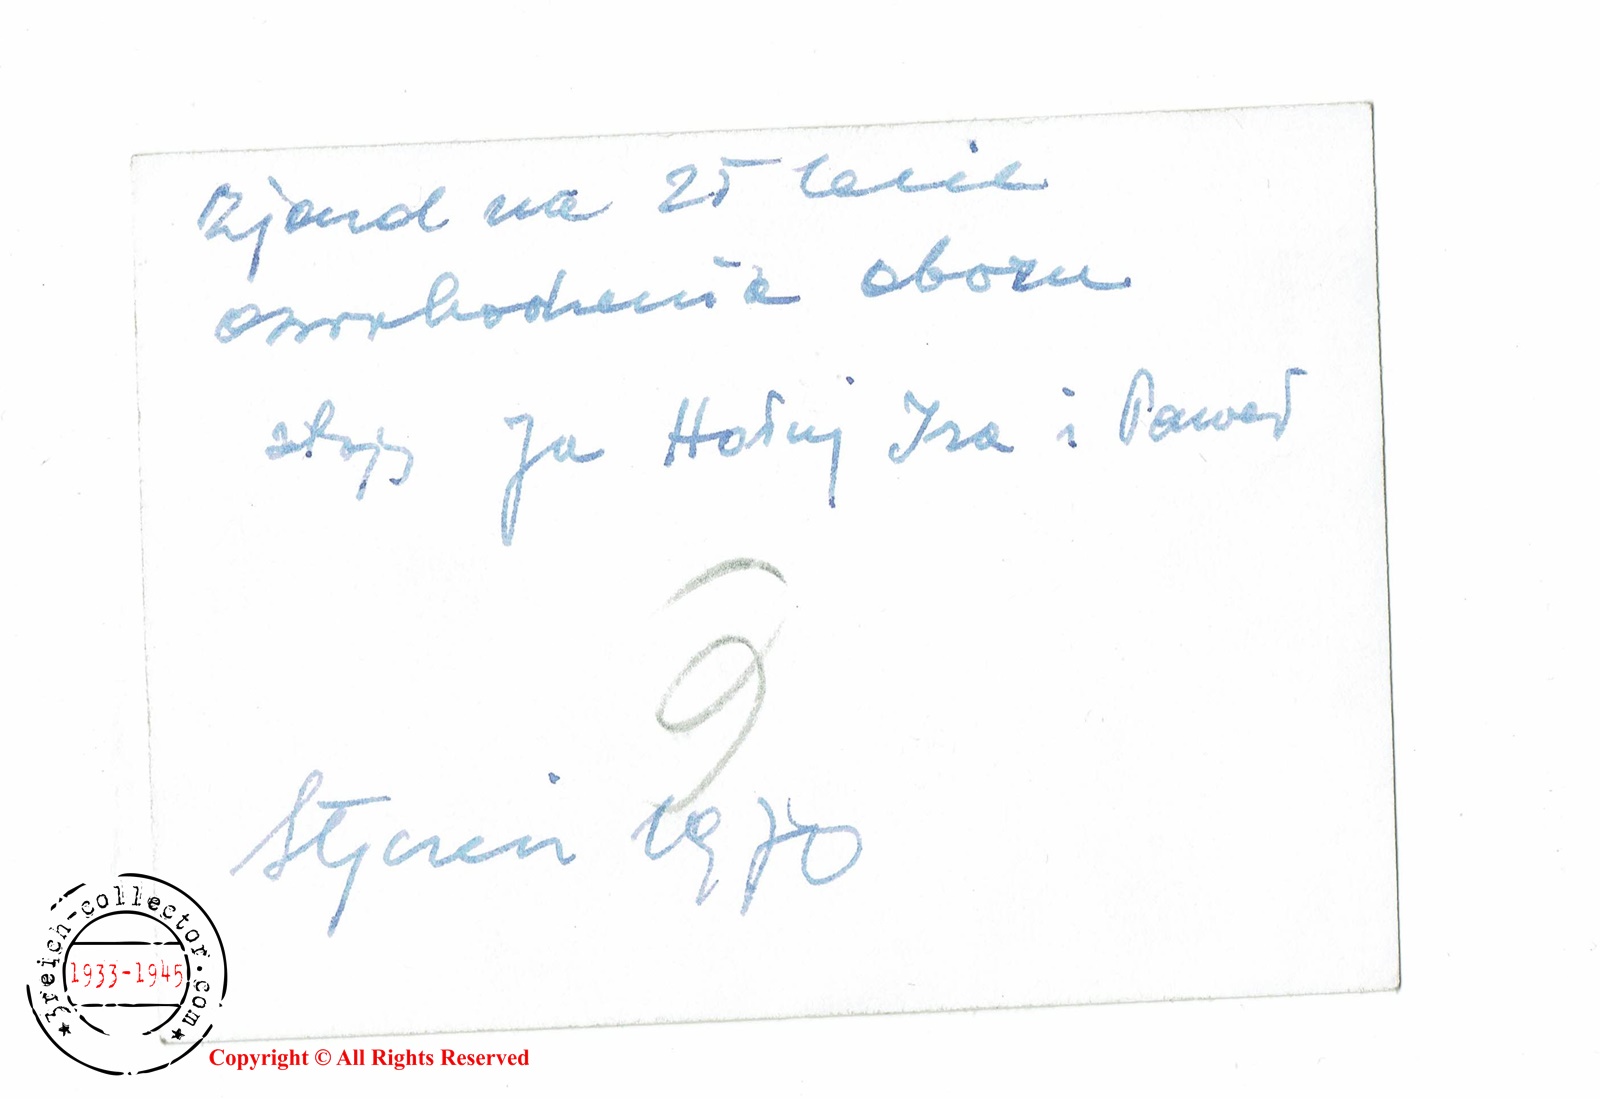 Zjazd na 25 lecie
oswobodzenia obozu
stoją Ja Hołuj Iza i Paweł
9
Styczeń 1970
3reich-collector.com
1933-1945
Copyright © All Rights Reserved